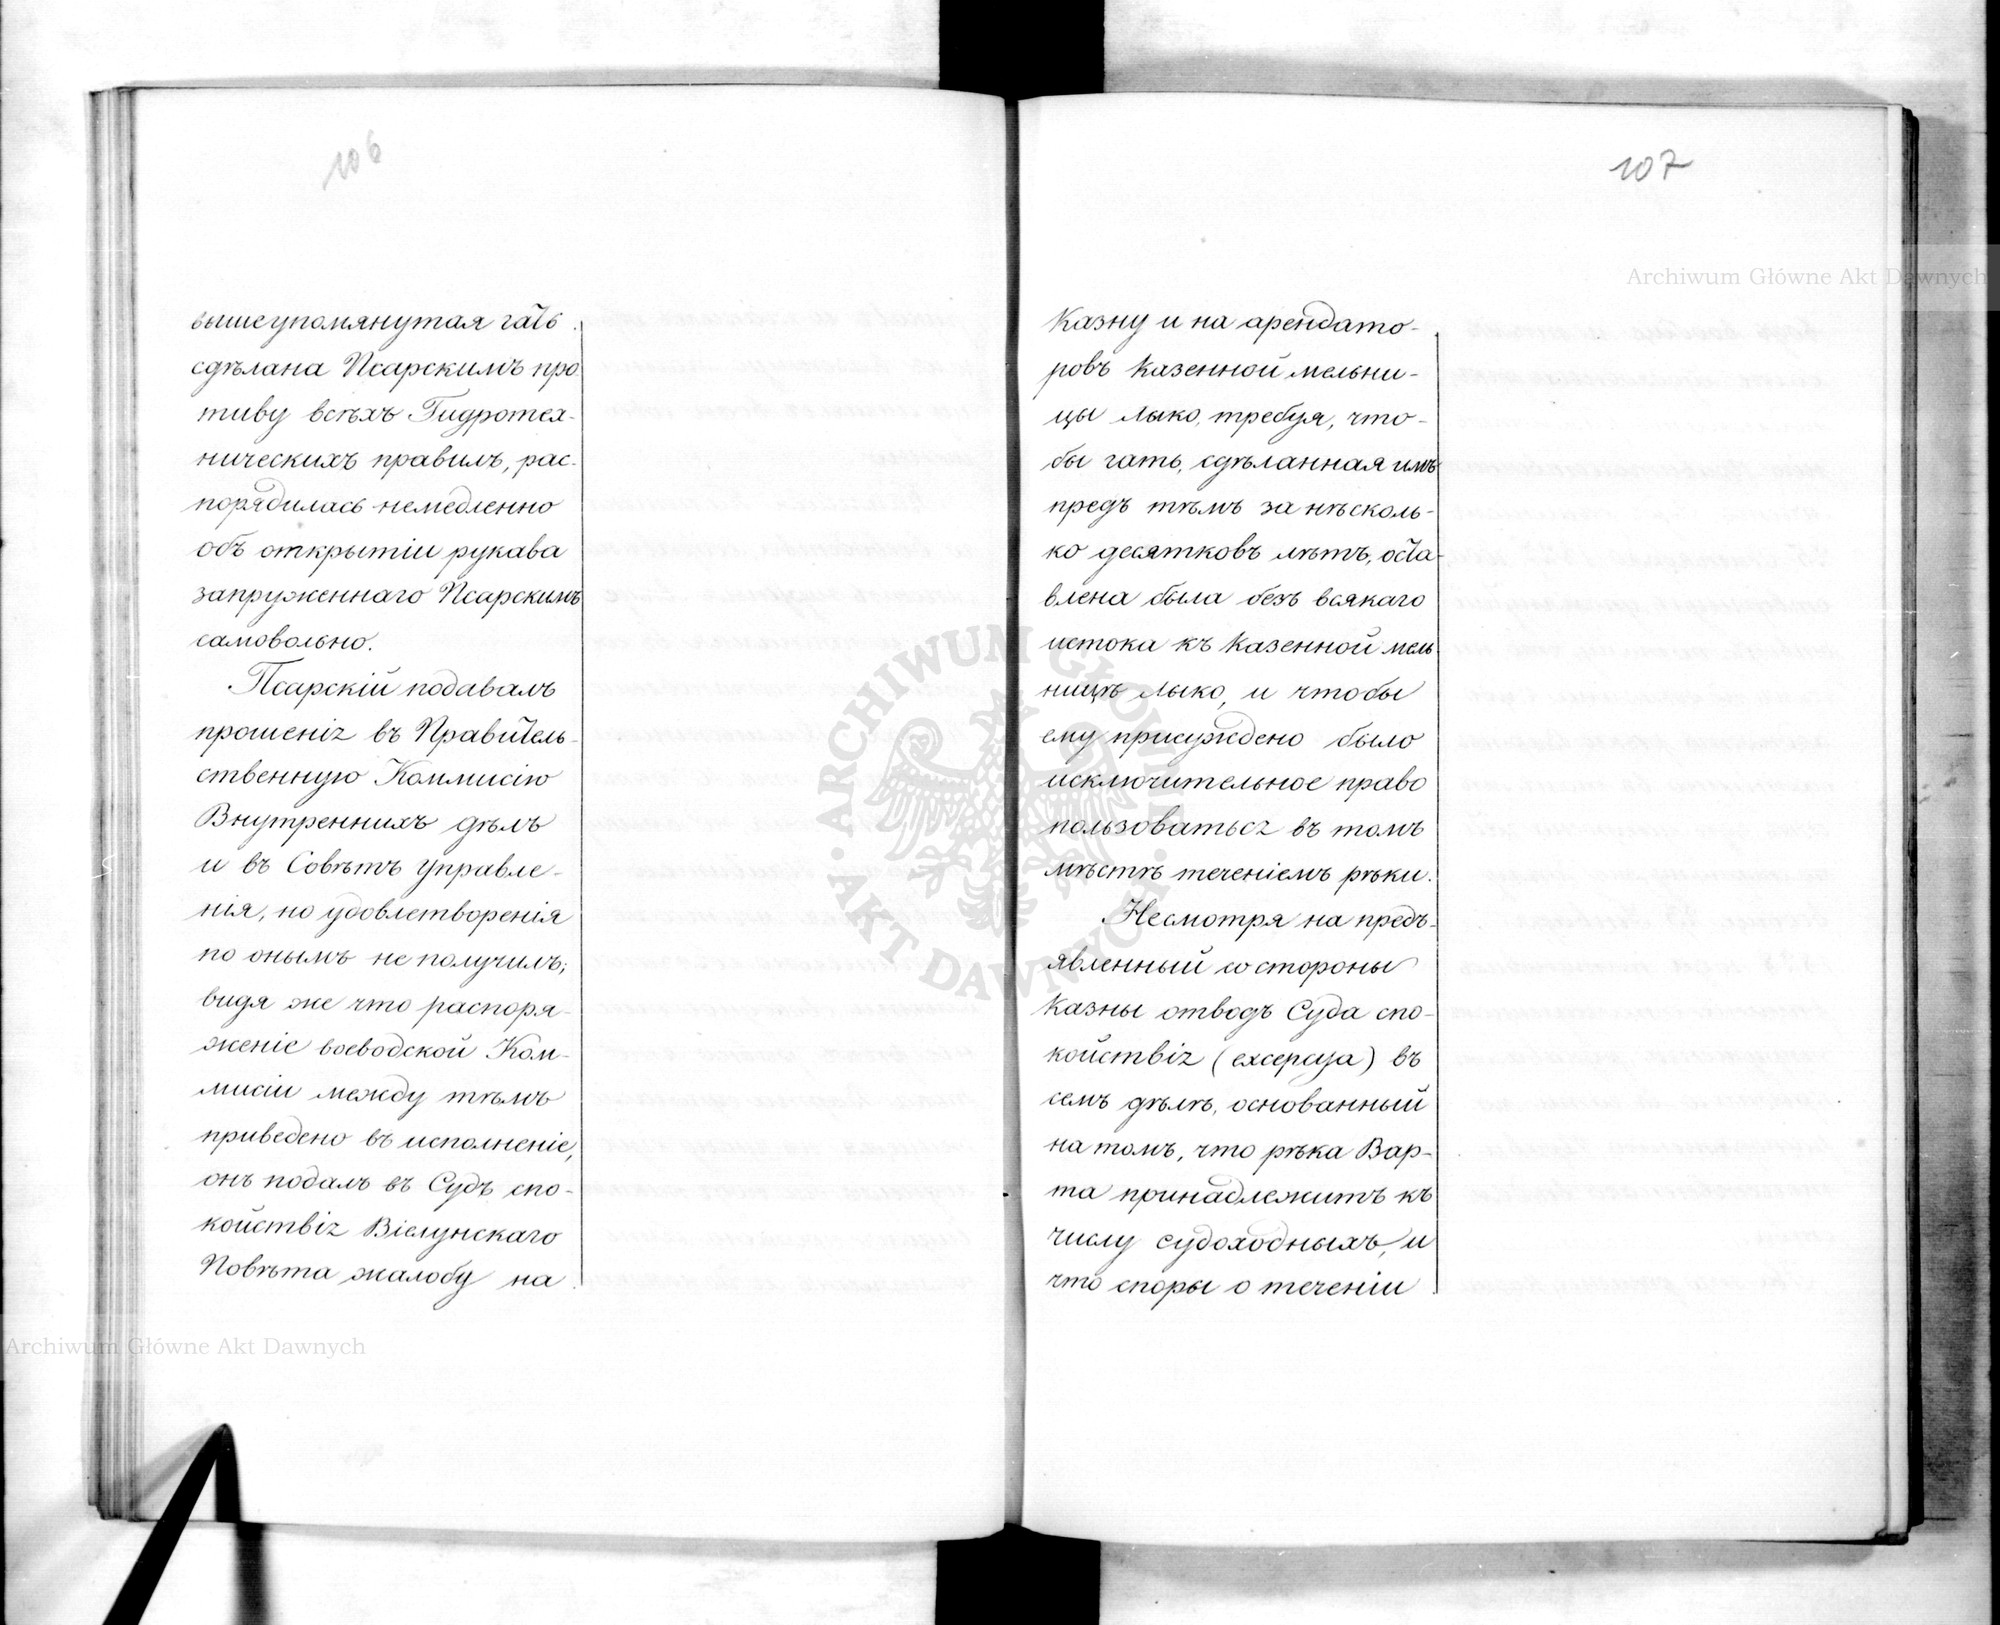 106
вышеупомянутая гать
сдѣлана Псарскимъ про
тиву всѣхъ Гидротех-
ническихъ правилъ, рас-
порядилась немедленно
объ открытіи рукава
запруженнаго Псарскимъ
самовольно.
Псарскій подавалъ
прошенія въ Правитель-
ственную Коммисію
Внутреннихъ дѣлъ
и въ Совѣтъ Управле-
нія, но удовлетворенія
по онымъ не получилъ;
видя же что распоря-
женіе воеводской Ком-
мисіи между тѣмъ
приведено въ исполненіе,
онъ подалъ въ Судъ спо-
койствія Віелунскаго
Повѣта жалобу на
107
Казну и на арендато-
ровъ Казенной мельни-
цы Лыко, требуя, что-
бы гать, сдѣланная имъ
предъ тѣмъ за нѣсколь-
ко десятковъ лѣтъ, оста-
влена была безъ всякаго
истока къ Казенной мель
ницѣ Лыко, и чтобы
ему присуждено было
исключительное право
пользоваться въ томъ
мѣстѣ теченіемъ рѣки.
Несмотря на предъ-
явленный со стороны
Казны отводъ Суда спо-
койствія (ехсерсуа) въ
семъ дѣлѣ, основанный
на томъ, что рѣка Вар-
та принадлежитъ къ
числу судоходныхъ, и
что споры о теченіи
Archiwum Główne Akt Dawnych
Archiwum Główne Akt Dawnych
ARCHIWUM GŁÓWNE · AKT DAWNYCH ·